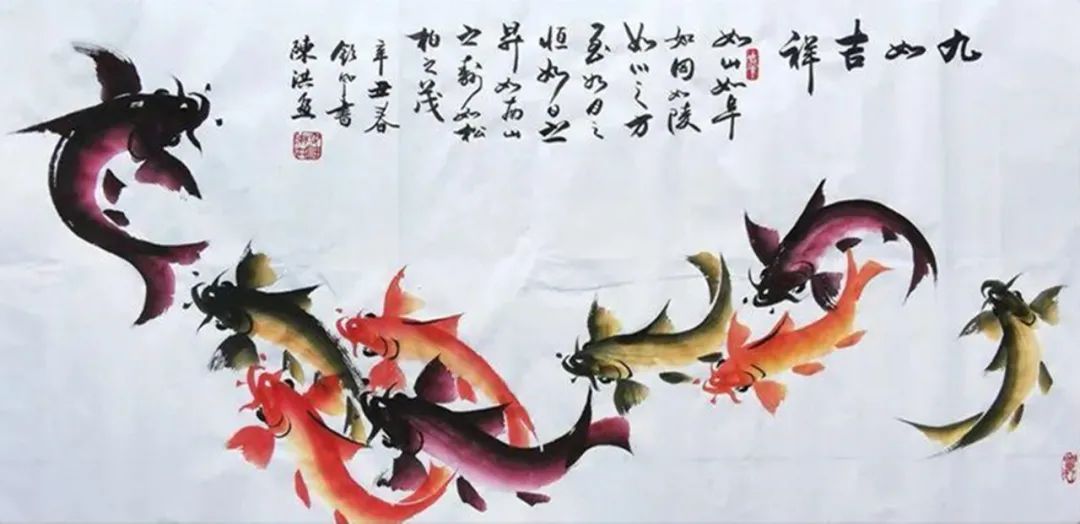 九如吉祥
如山如阜
如岡如陵
如川之方
至如月之
恒如日之
昇如南山
之壽如松
柏之茂
辛丑春
書
陳洪